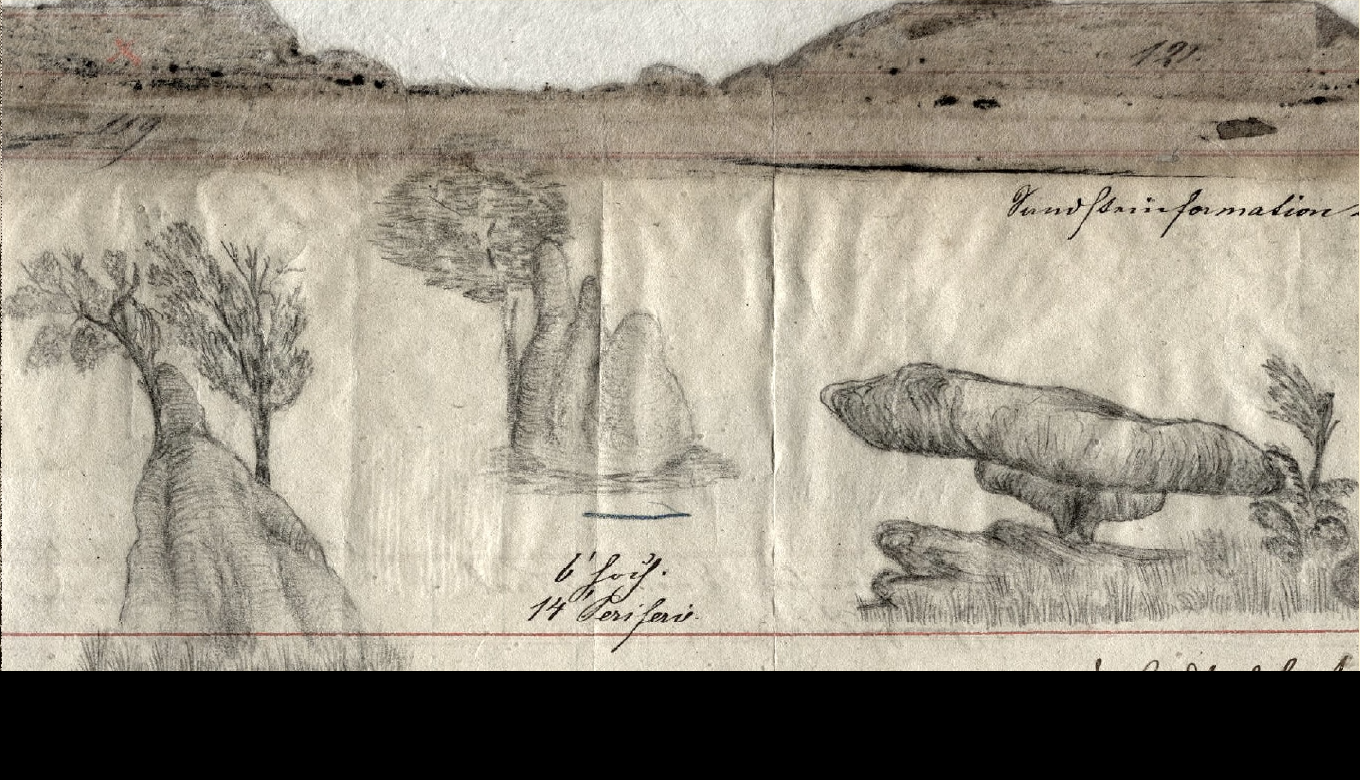 121.
119
Sandsteinformation
6' hoch.
14' Periferie.